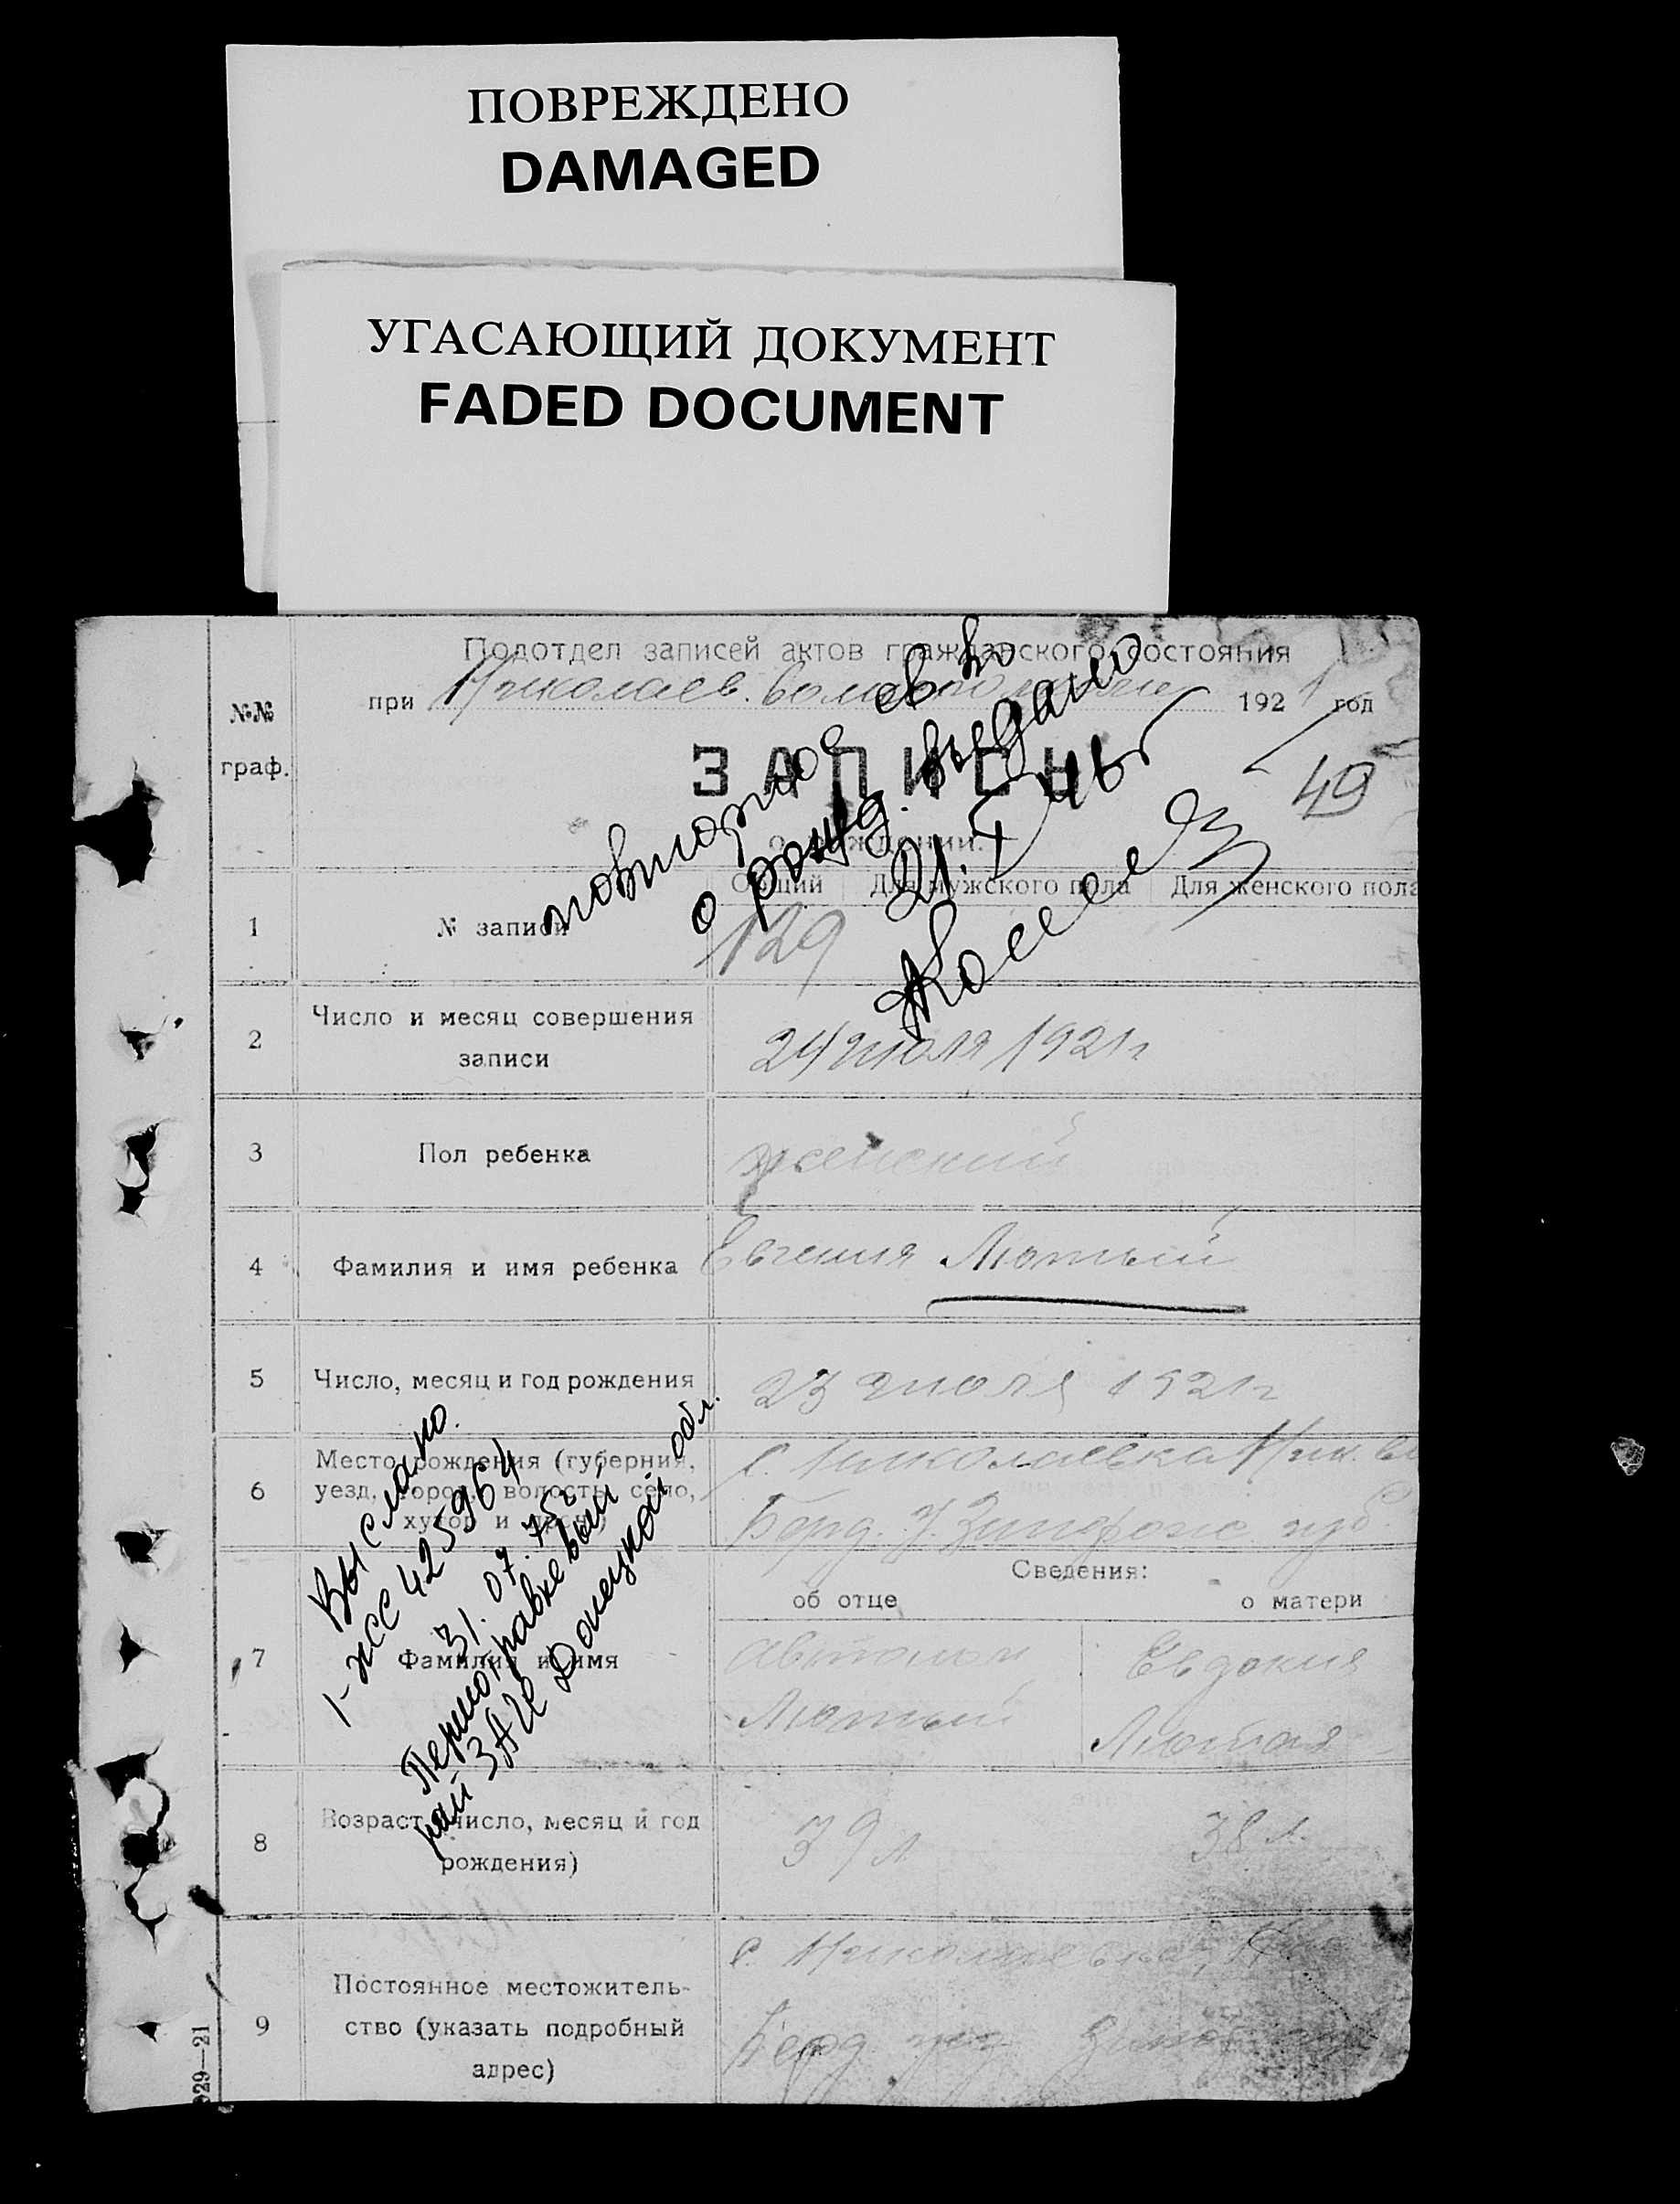 ПОВРЕЖДЕНО
DAMAGED
УГАСАЮЩИЙ ДОКУМЕНТ
FADED DOCUMENT
Подотдел записей актов гражданского состояния
при Николаев. 1921 год
№№
граф.
ЗАПИСЬ
49
о рождении.
повторное св во
о рожд. выдано
21.X
Общий Для мужского пола Для женского пола
1 № записи 129
2 Число и месяц совершения
записи
24 июля 1921 г
3 Пол ребенка женский
4 Фамилия и имя ребенка Евгения Лютый
5 Число, месяц и год рождения 23 июля 1921 г
6 Место рождения (губерния,
уезд, город, волость, село,
хутор и
с. Николаевка Ник. вол
Берд. у. губ.
Сведения:
об отце о матери
7 Фамилия и имя
Автоном Евдокия
Лютый Лютая
Выслано.
1-ЖС 425964
31.07.75г
рай ЗАГС Донецкой обл.
8 Возраст (число, месяц и год
рождения)
39 л 38 л.
9 Постоянное местожитель-
ство (указать подробный
адрес)
с. Николаевка,
Берд.
929—21